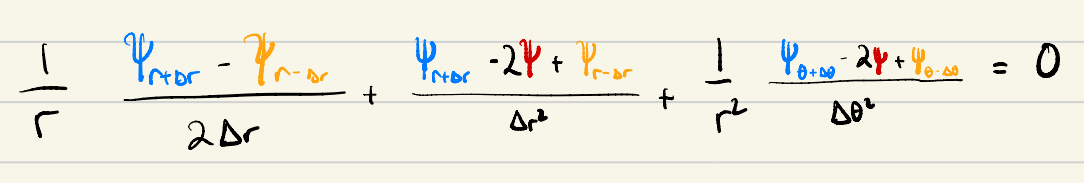 1/r (ψ_{r+Δr} - ψ_{r-Δr})/(2Δr) + (ψ_{r+Δr} - 2ψ + ψ_{r-Δr})/Δr² + 1/r² (ψ_{θ+Δθ} - 2ψ + ψ_{θ-Δθ})/Δθ² = 0